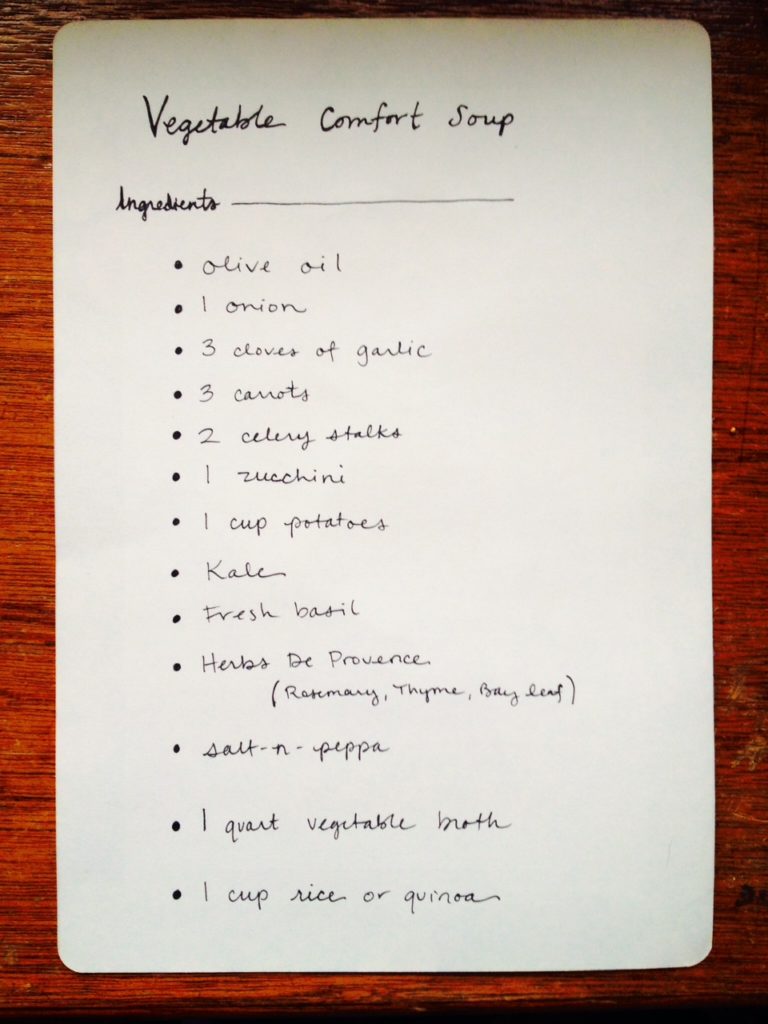 Vegetable Comfort Soup
Ingredients
• olive oil
• 1 onion
• 3 cloves of garlic
• 3 carrots
• 2 celery stalks
• 1 zucchini
• 1 cup potatoes
• Kale
• Fresh basil
• Herbs De Provence
(Rosemary, Thyme, Bay leaf)
• salt-n-peppa
• 1 quart vegetable broth
• 1 cup rice or quinoa